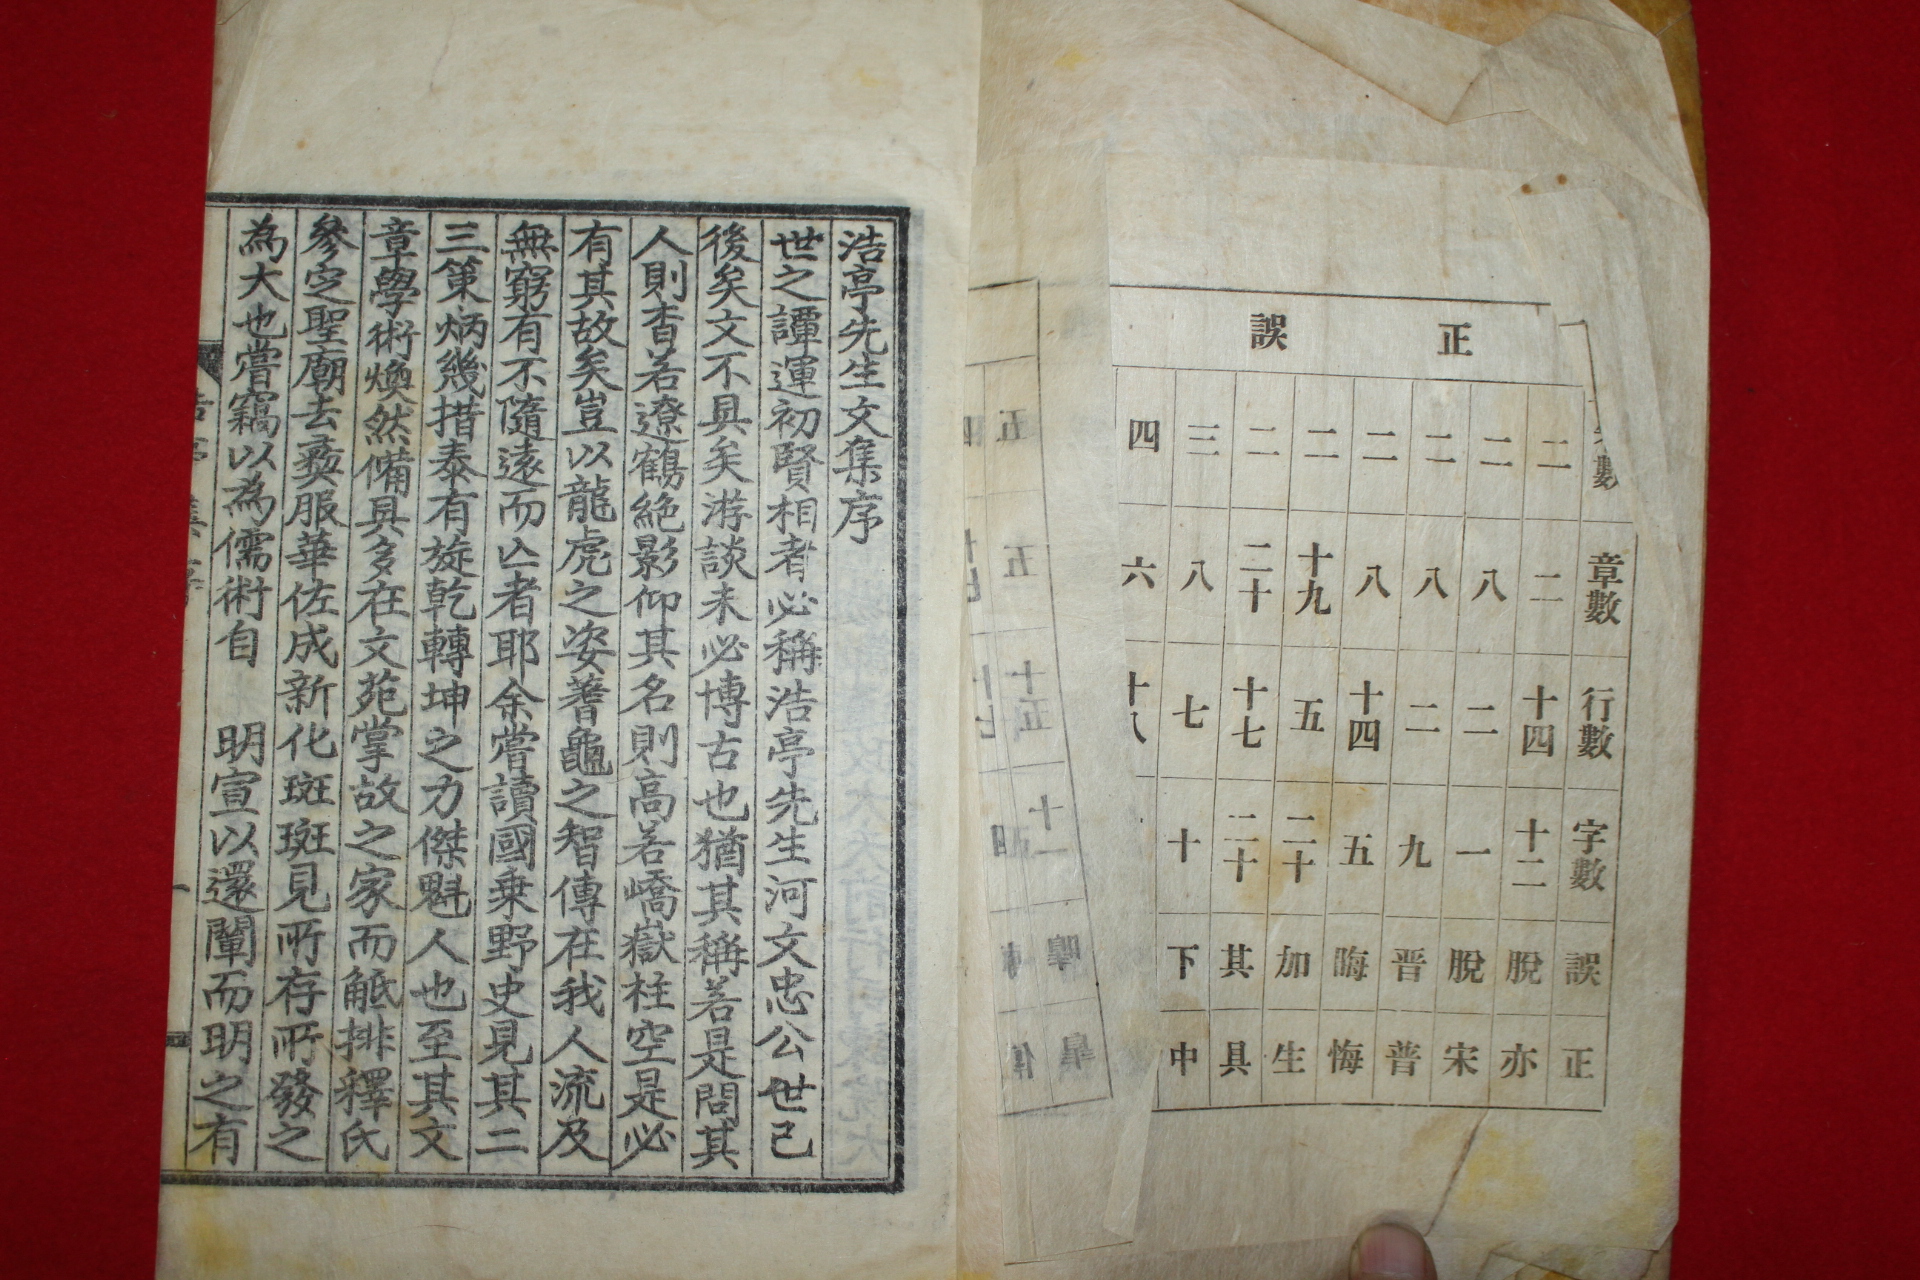 正誤
數 章數 行數 字數 誤 正
二 二 十四 十二 脫 亦
二 八 二 一 脫 宋
二 八 二 九 晋 普
二 八 十四 五 晦 悔
二 十九 五 二十 加 生
二 二十 十七 二十 其 具
三 八 七 十 下 中
四 六 十八
浩亭先生文集序
世之譚運初賢相者必稱浩亭先生河文忠公世已
後矣文不具矣游談未必博古也猶其稱若是問其
人則杳若遼鶴絶影仰其名則高若嶠嶽柱空是必
有其故矣豈以龍虎之姿蓍龜之智傳在我人流及
無窮有不隨遠而亾者耶余嘗讀國乗野史見其二
三策炳幾措泰有旋乾轉坤之力傑魁人也至其文
章學術煥然備具多在文苑掌故之家而觝排釋氏
參定聖廟去彜服華佐成新化斑斑見所存所發之
為大也嘗竊以為儒術自 明宣以還闡而明之有